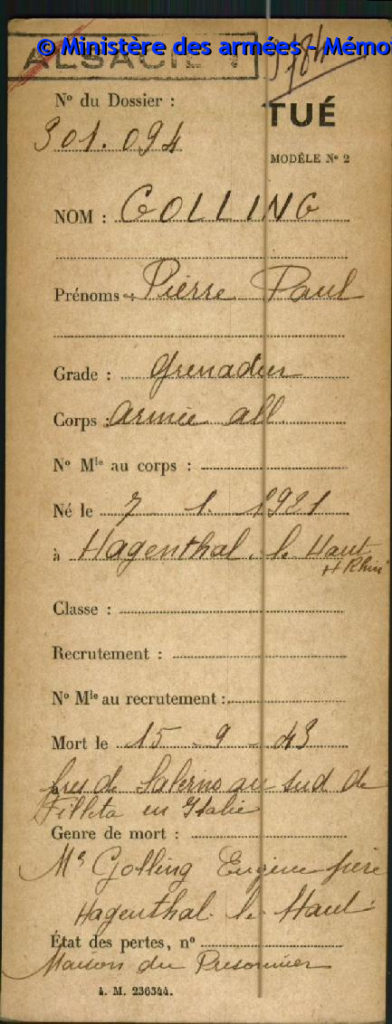 © Ministère des armées - Mémoi
ALSACIEN
N° du Dossier :
301.094
TUÉ
MODÈLE N° 2
NOM : GOLLING
Prénoms : Pierre Paul
Grade : Grenadier
Corps : armée all.
N° Mle au corps :
Né le 7 1. 1921
à Hagenthal. le Haut
H Rhin
Classe :
Recrutement :
N° Mle au recrutement :
Mort le 15 - 9 - 43
près de Salerno au sud de
Filleta en Italie
Genre de mort :
Mr Golling Eugène père
Hagenthal. le Haut.
État des pertes, n°
Maison du Prisonnier
I. M. 236344.